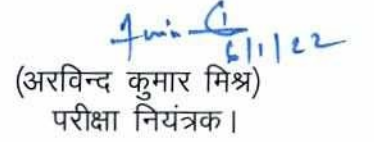 6/1/22
(अरविन्द कुमार मिश्र)
परीक्षा नियंत्रक।